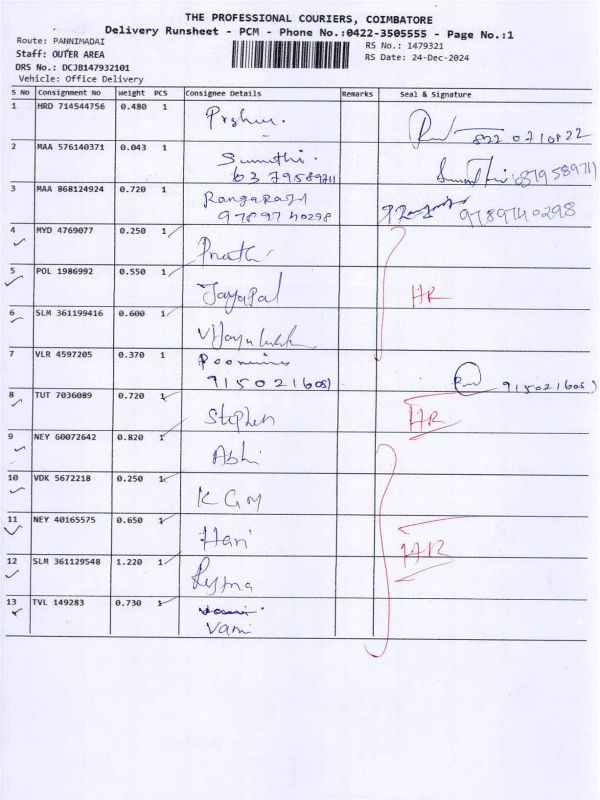 THE PROFESSIONAL COURIERS, COIMBATORE
Delivery Runsheet - PCM - Phone No.:0422-3505555 - Page No.:1
Route: PANNIMADAI RS No.: 1479321
Staff: OUTER AREA RS Date: 24-Dec-2024
DRS No.: DCJB147932101
Vehicle: Office Delivery
S No Consignment No Weight PCS Consignee Details Remarks Seal & Signature
1 HRD 714544756 0.480 1
822 0710822
2 MAA 576140371 0.043 1 Sumithi.
63 79589711 6379589711
3 MAA 868124924 0.720 1 Rangaraju
9789740298 9789740298
4 MYD 4769077 0.250 1
5 POL 1986992 0.550 1 Jayapal HR
6 SLM 361199416 0.600 1
7 VLR 4597205 0.370 1
9150216051 9150216051
8 TUT 7036089 0.720 1 Stephen HR
9 NEY 60072642 0.820 1 Abhi
10 VDK 5672218 0.250 1
11 NEY 40165575 0.650 1 Hari HR
12 SLM 361129548 1.220 1
13 TVL 149283 0.730 1